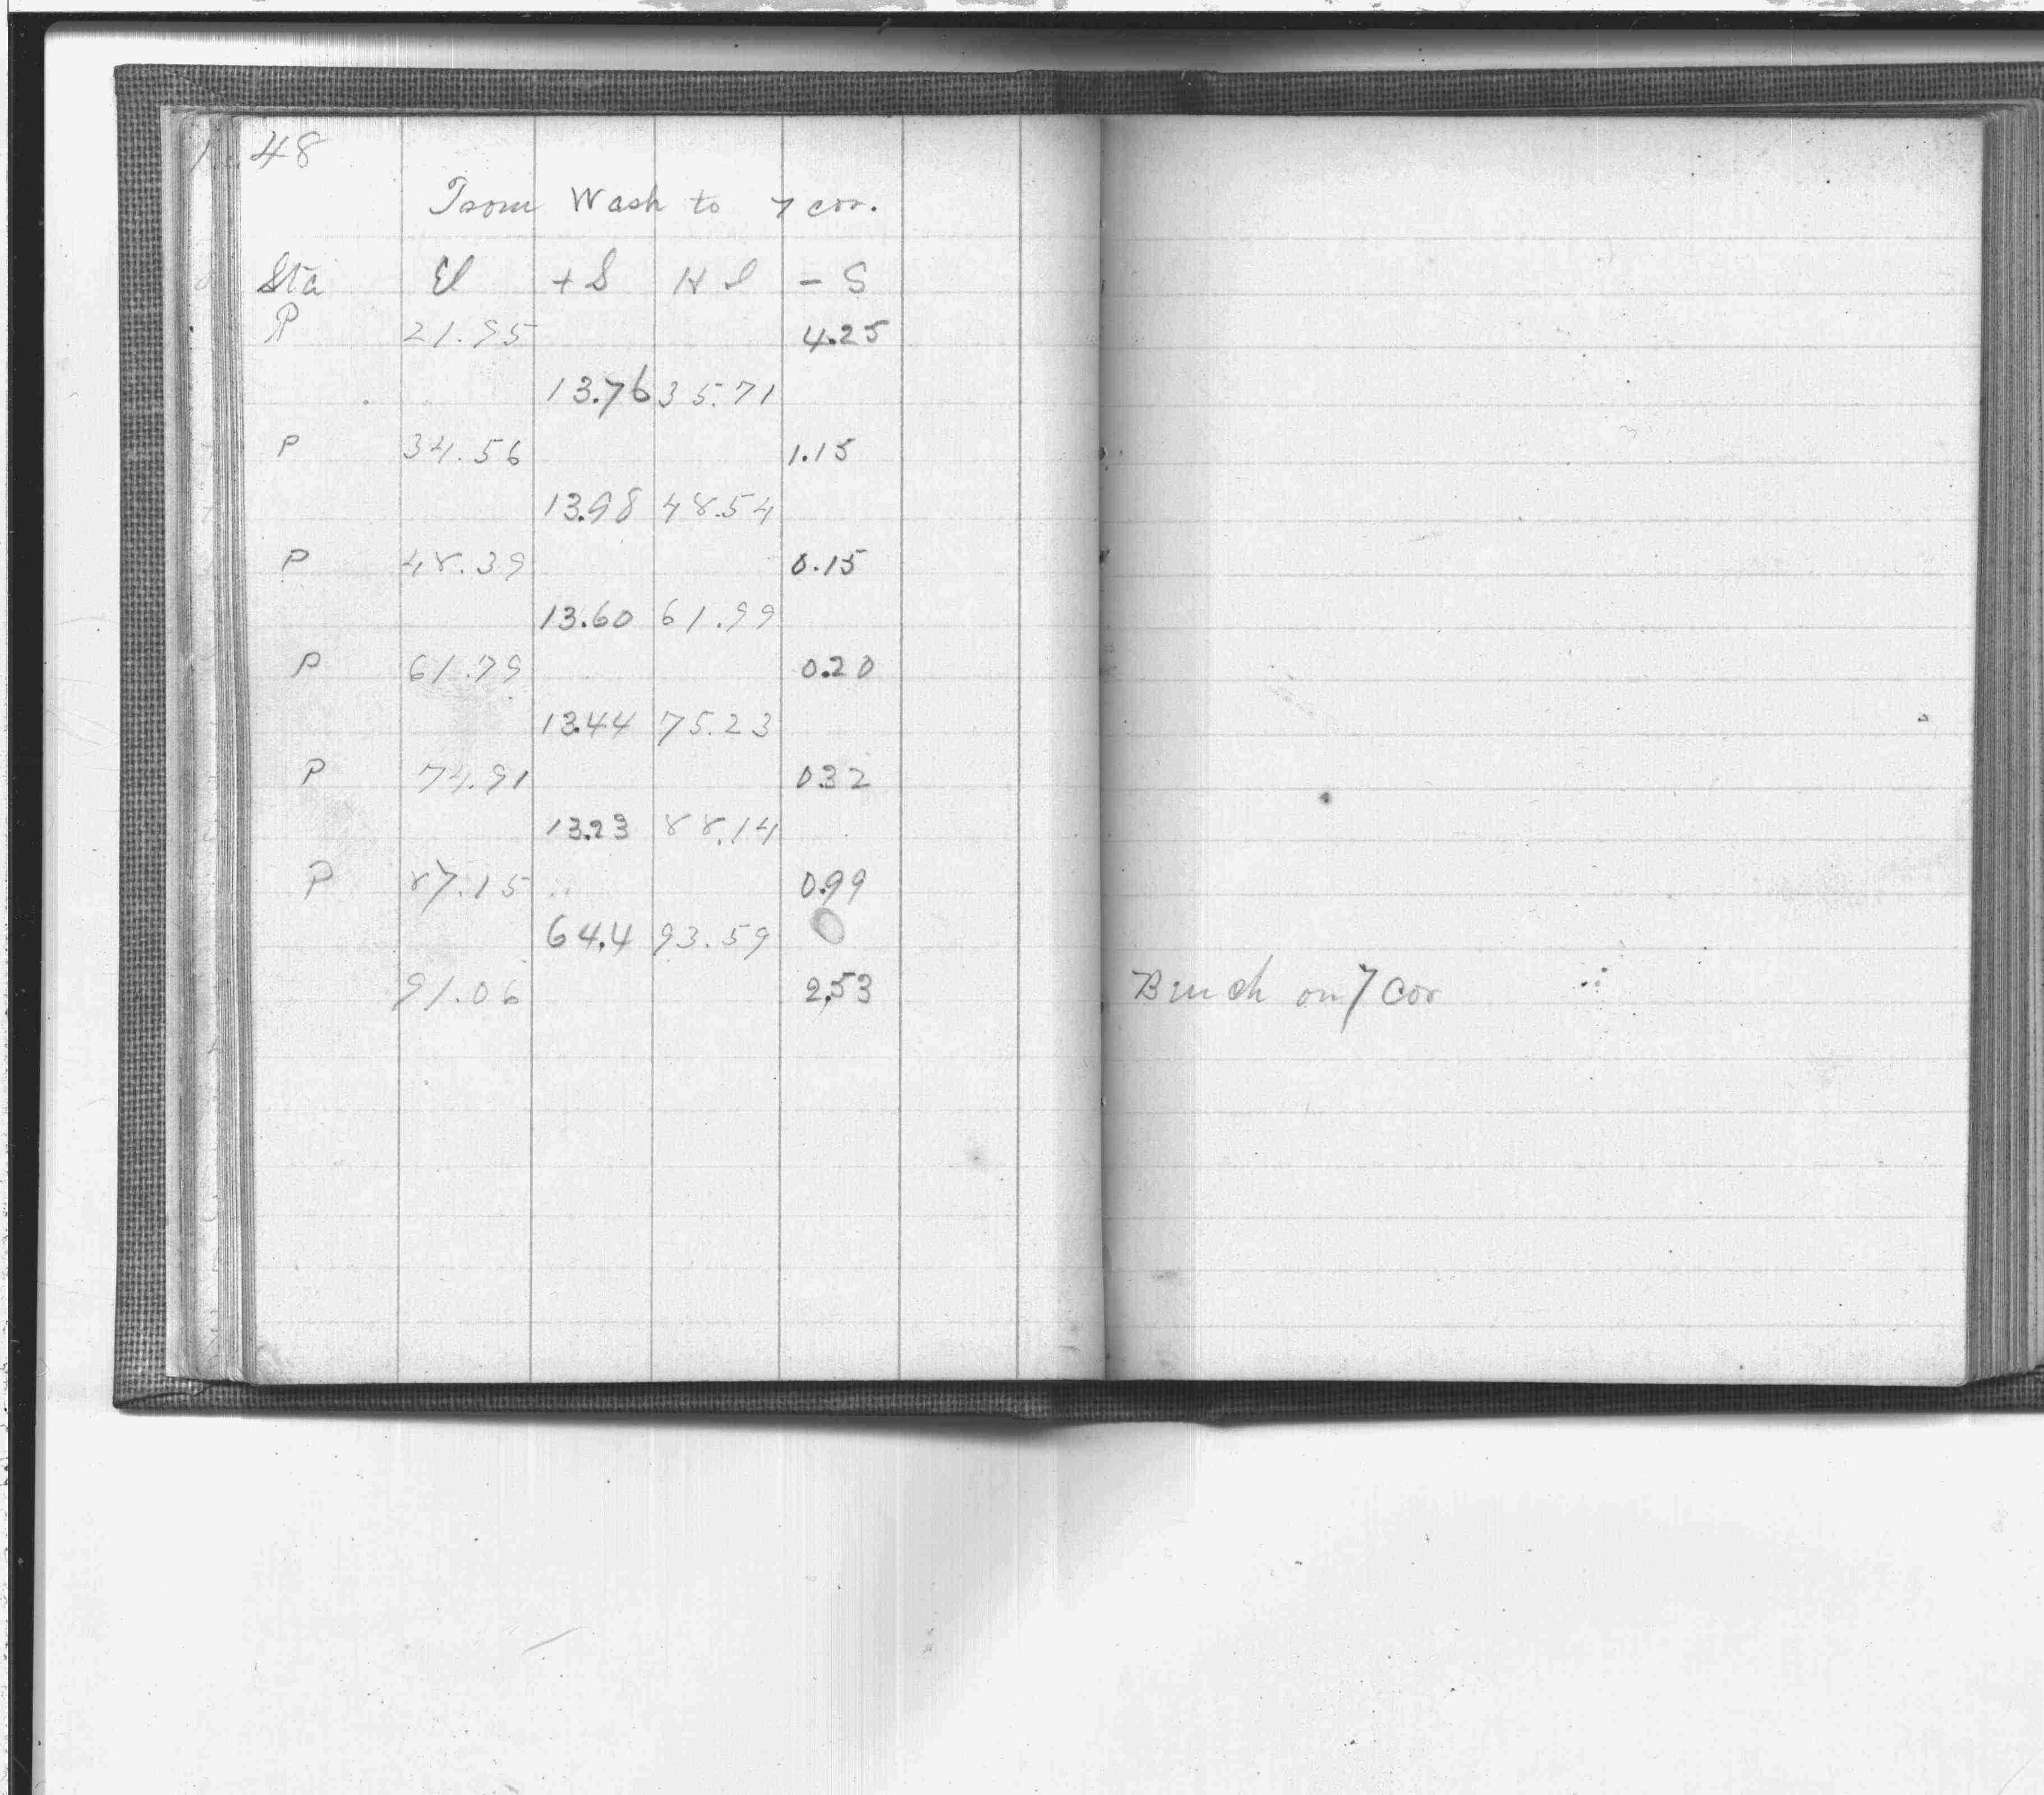 48
From Wash to 7 cor.
Sta El +S H I - S
P 21.95 4.25
13.76 35.71
P 34.56 1.15
13.98 48.54
P 48.39 0.15
13.60 61.99
P 61.79 0.20
13.44 75.23
P 74.91 0.32
13.23 88.14
P 87.15 0.99
64.4 93.59 0
91.06 2.53 Bench on 7 Cor